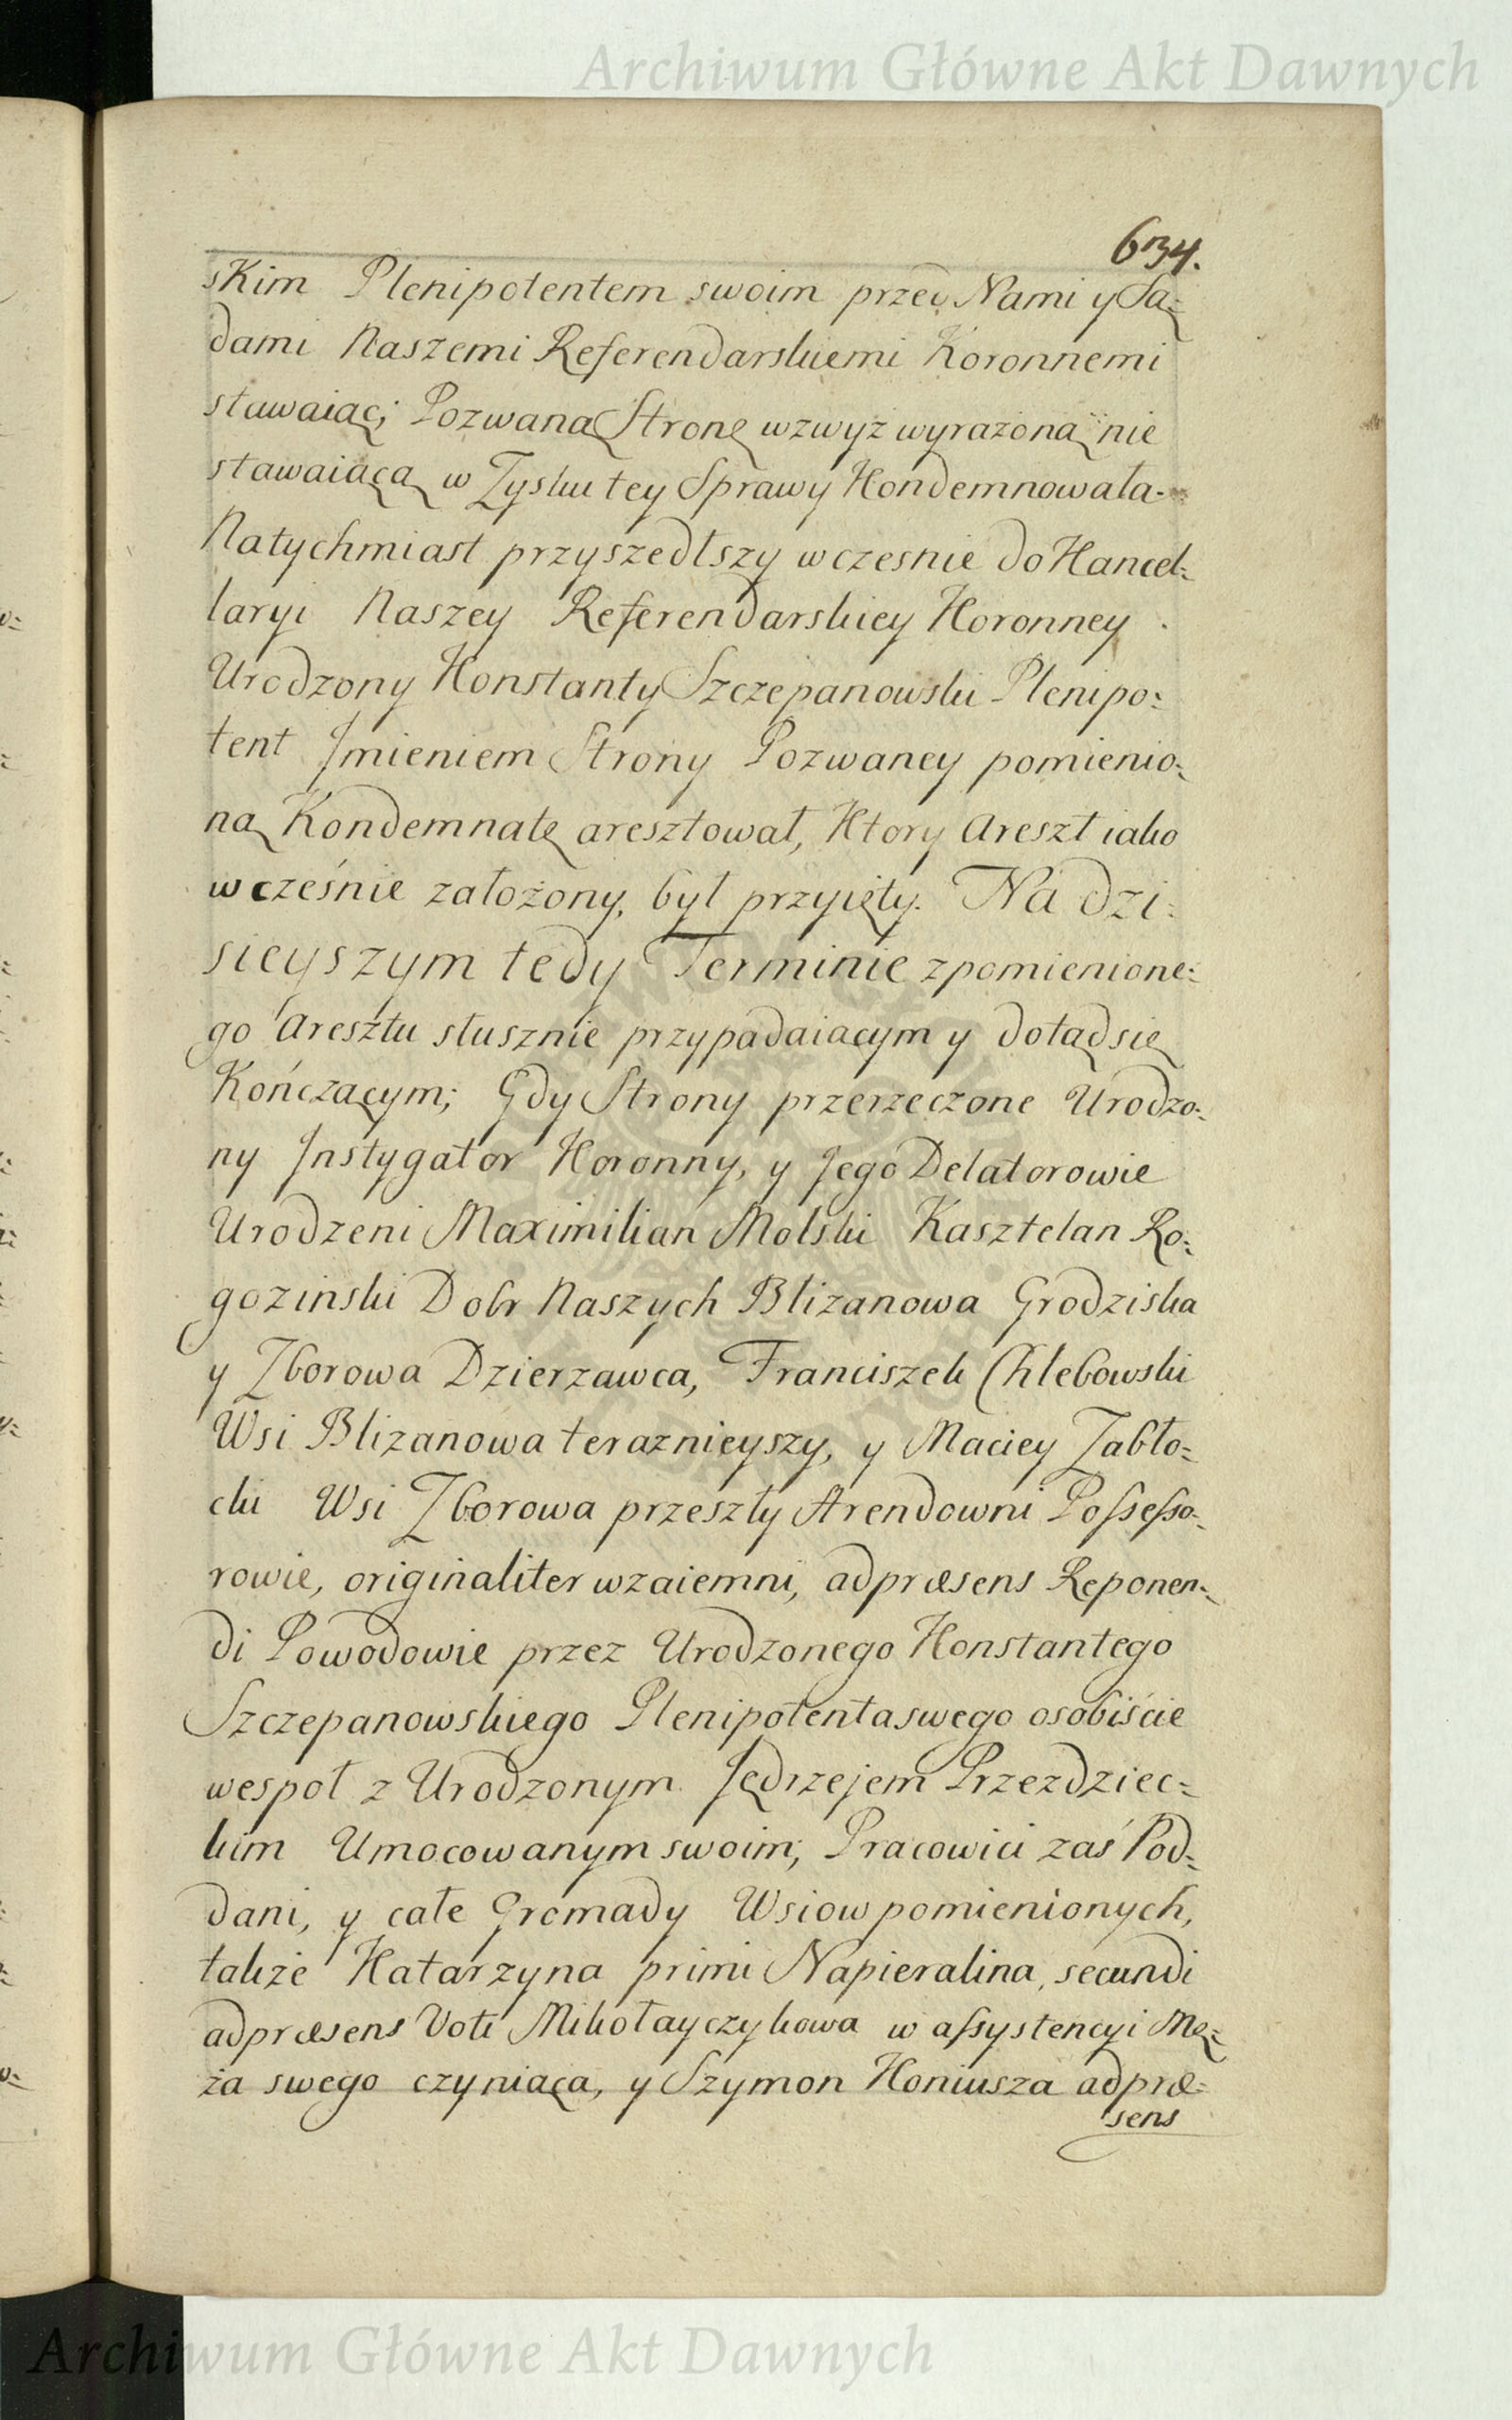 Archiwum Główne Akt Dawnych
634.
skim Plenipotentem swoim przed Nami y Są=
dami Naszemi Referendarskiemi Koronnemi
stawaiąc; Pozwaną Stronę wzwyż wyrażoną nie
stawaiącą w Zysku tey Sprawy Kondemnowała.
Natychmiast przyszedłszy wczesnie do Kancel=
laryi Naszey Referendarskiey Koronney
Urodzony Konstanty Szczepanowski Plenipo=
tent Jmieniem Strony Pozwaney pomienio=
ną Kondemnatę aresztował, Ktory Areszt iako
wcześnie założony, był przyięty. Na dzi=
sieyszym tedy Terminie zpomienione=
go Aresztu słusznie przypadaiącym y dotąd się
Kończącym; Gdy Strony przerzeczone Urodzo=
ny Jnstygator Koronny, y Jego Delatorowie
Urodzeni Maximilian Molski Kasztelan Ro=
gozinski Dobr Naszych Blizanowa Grodziska
y Zborowa Dzierzawca, Franciszek Chlebowski
Wsi Blizanowa teraznieyszy, y Maciey Zabło=
cki Wsi Zborowa przeszły Arendowni Possesso=
rowie, originaliter wzaiemni, adpræsens Reponen=
di Powodowie przez Urodzonego Konstantego
Szczepanowskiego Plenipotenta swego osobiście
wespoł z Urodzonym Jędrzejem Przezdziec=
kim Umocowanym swoim; Pracowici zaś Pod=
dani, y całe Gromady Wsiow pomienionych,
także Katarzyna primi Napieralina, secundi
adpræsens Voti Mikołayczykowa w assystencyi Mę=
ża swego czyniąca, y Szymon Koniusza adpræ=
sens
Archiwum Główne Akt Dawnych